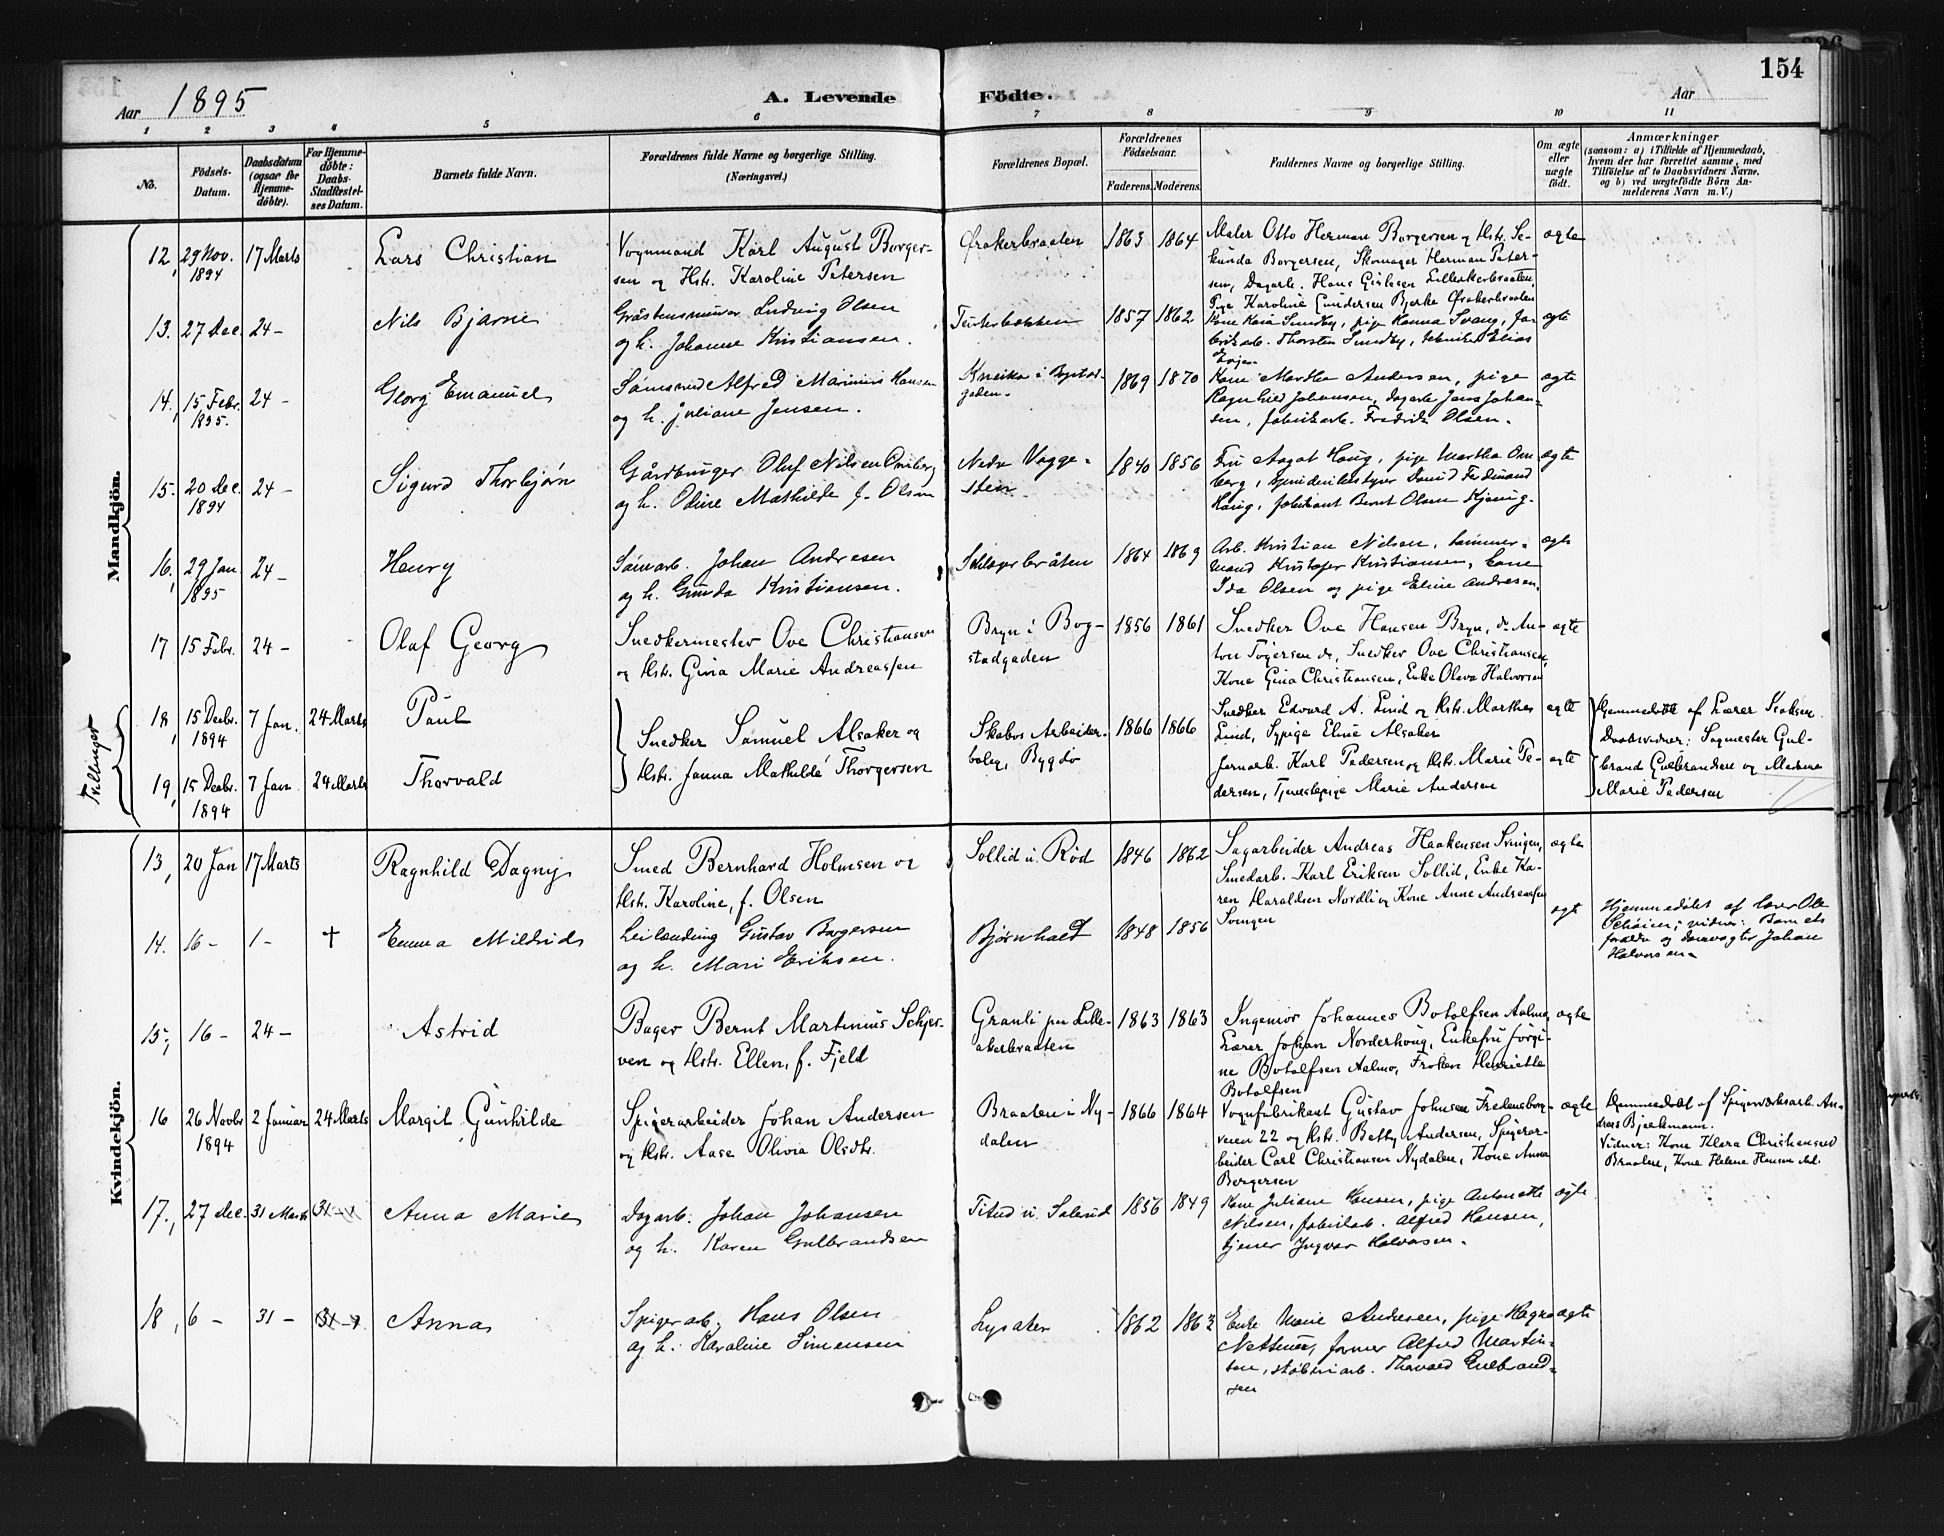 154
Aar 1895
A. Levende Födte.
Aar
1 2 3 4 5 6 7 8 9 10 11
No.
Födsels-Datum.
Daabsdatum (ogsaa for Hjemme-döbte).
For Hjemme-döbte: Daabs-Stadfæstel-ses Datum.
Barnets fulde Navn.
Forældrenes fulde Navne og borgerlige Stilling. (Næringsvei.)
Forældrenes Bopæl.
Forældrenes Födselsaar.
Faderens. Moderens.
Faddernes Navne og borgerlige Stilling.
Om ægte eller uægte födt.
Anmærkninger
(saasom: a) i Tilfælde af Hjemmedaab,
hvem der har forrettet samme, med
Tilföielse af to Daabsvidners Navne,
og b) ved uægtefödte Börn An-
melderens Navn m. V.)
Mandkjön.
12, 29 Nov. 1894 17 Marts Lars Christian
Vognmand Karl August Borger-
sen og Hstr. Karoline Petersen
Ørakerbraaten 1863 1864
Maler Otto Herman Borgersen og Hstr. Se-
kunda Borgersen, Skomager Herman Peter-
sen, Dagarb. Hans Lilleakerbraaten,
Pige Karoline Gundersen Bjerke Ørakerbraaten
ægte
13. 27 Dec. 24 - Nils Bjarne
Gråstensmurer Ludvig Olsen
og h. Johanne Kristiansen.
1857 1862
Kone Sundby, pige Hanna Svang, fa-
brikarb. Thorsten Sundby, Elias
ægte
14, 15 Febr. 1895. 24 - Georg Emanuel
Alfred Marinius Hansen
og h. Juliane Jensen.
gaden. 1869 1870
Kone Martha Andersen, pige
Ragnhild Johansen, dagarb Jens Johan-
sen, fabrikarb. Fredrik Olsen.
ægte
15. 20 Dec. 1894 24 - Sigurd Thorbjørn
Gårdbruger Oluf Nilsen Omberg
og h. Odine Mathilde f. Olsen
Nedre Vægge-
stein 1840 1856
Fru Aagot Haug, pige Martha Om-
berg, David Ferdinand
Haug, fabrikant Bernt Olsen
ægte
16, 29 Jan 1895 24 - Henry
Johan Andresen
og h. Gunda Kristiansen.
1864 1869
Arb. Kristian Nilsen, tømmer-
mand Kristofer Kristiansen, kone
Ida Olsen og pige Eline Andresen.
ægte
17 15 Febr. 24 - Olaf Georg
Snedkermester Ove Christiansen
og Hstr. Gina Marie Andreassen
Bryn i Bog-
stadgaden 1856 1861
Snedker Ove Hansen Bryn, do An-
ton Togersen do, Snedker Ove Christiansen,
Kone Gina Christiansen, Enke Oleva Halvorsen
ægte
Tvillinger
18, 15 Decbr. 1894 7 Jan. 24 Marts Paul
19, 15 Decbr. 1894 7 Jan 24 Marts Thorvald
Snedker Samuel Alsaker og
Hstr. Janna Mathilde Thorgersen
Skabos Arbeider-
bolig, Bygdø 1866 1866
Snedker Edvard A. Lind og Hstr. Marthea
Lind, Sypige Eline Alsaker
Jernarb. Karl Pedersen og Hstr. Marie Pe-
dersen, Tjenestepige Marie Andersen
ægte
ægte
Hjemmedøbt af Lærer
Daabsvidner: Sagmester Gul-
brand Gulbrandsen og Madame
Marie Pedersen
Kvindekjön.
13, 20 Jan 17 Marts Ragnhild Dagny
Smed Bernhard Holmsen og
Hstr. Karoline, f. Olsen
Sollid u. Rød 1846 1862
Sagarbeider Andreas Haakensen Svingen,
Smedarb. Karl Eriksen Sollid, Enke Ka-
ren Haraldsen Nordli og Kone Anne Andreassen
Svingen
ægte
14. 16 - 1 - † Emma Mildrid
Leilænding Gustav Borgersen
og h. Mari Eriksen.
Bjørnhald 1848 1856
ægte
Hjemmedøbt af lærer Ole
vidner: Barnets
forældre og Johan
Halvorsen
15, 16 - 24 - Astrid
Bager Bernt Martinius Schjer-
ven og Hstr. Ellen, f. Fjeld
Granli pr Lille-
akerbraaten 1863 1863
Ingeniør Johannes Botolfsen Aalmo,
Lærer Johan Norderhoug, Enkefru Jørgi-
ne Botolfsen Aalmo, Frøken Henriette
Botolfsen
ægte
16 26 Novbr 1894 2 Januar 24 Marts Margit Gunhilde
Spigerarbeider Johan Andersen
og Hstr. Aase Olivia Olsdtr.
Braaten i Ny-
dalen 1866 1864
Vognfabrikant Gustav Johnsen Fredensborg-
veien 22 og Hstr. Betty Andersen, Spigerar-
beider Carl Christiansen Nydalen, Kone Anna
Bergersen
ægte
Hjemmedøbt af Spigerværksarb. An-
dreas Bjerkmann.
Vidner: Kone Klara Christiansen
Braaten, Kone Helene Hansen ibd.
17., 27 dec. 31 Marts Anna Marie
Dagarb. Johan Johansen
og h. Karen Gulbrandsen
1856 1849
Kone Juliane Hansen, pige Antonette
Nilsen, fabrikarb. Alfred Hansen,
tjener Ingvar Halvorsen.
ægte
18, 6 - 31 - Anna
Spigerarb. Hans Olsen
og h. Karoline Simensen
Lysaker 1862 1863
Enke Marie Andersen, pige Hagna
former Alfred Martin-
sen, støberiarb. Thorvald Gulbrand-
sen
ægte